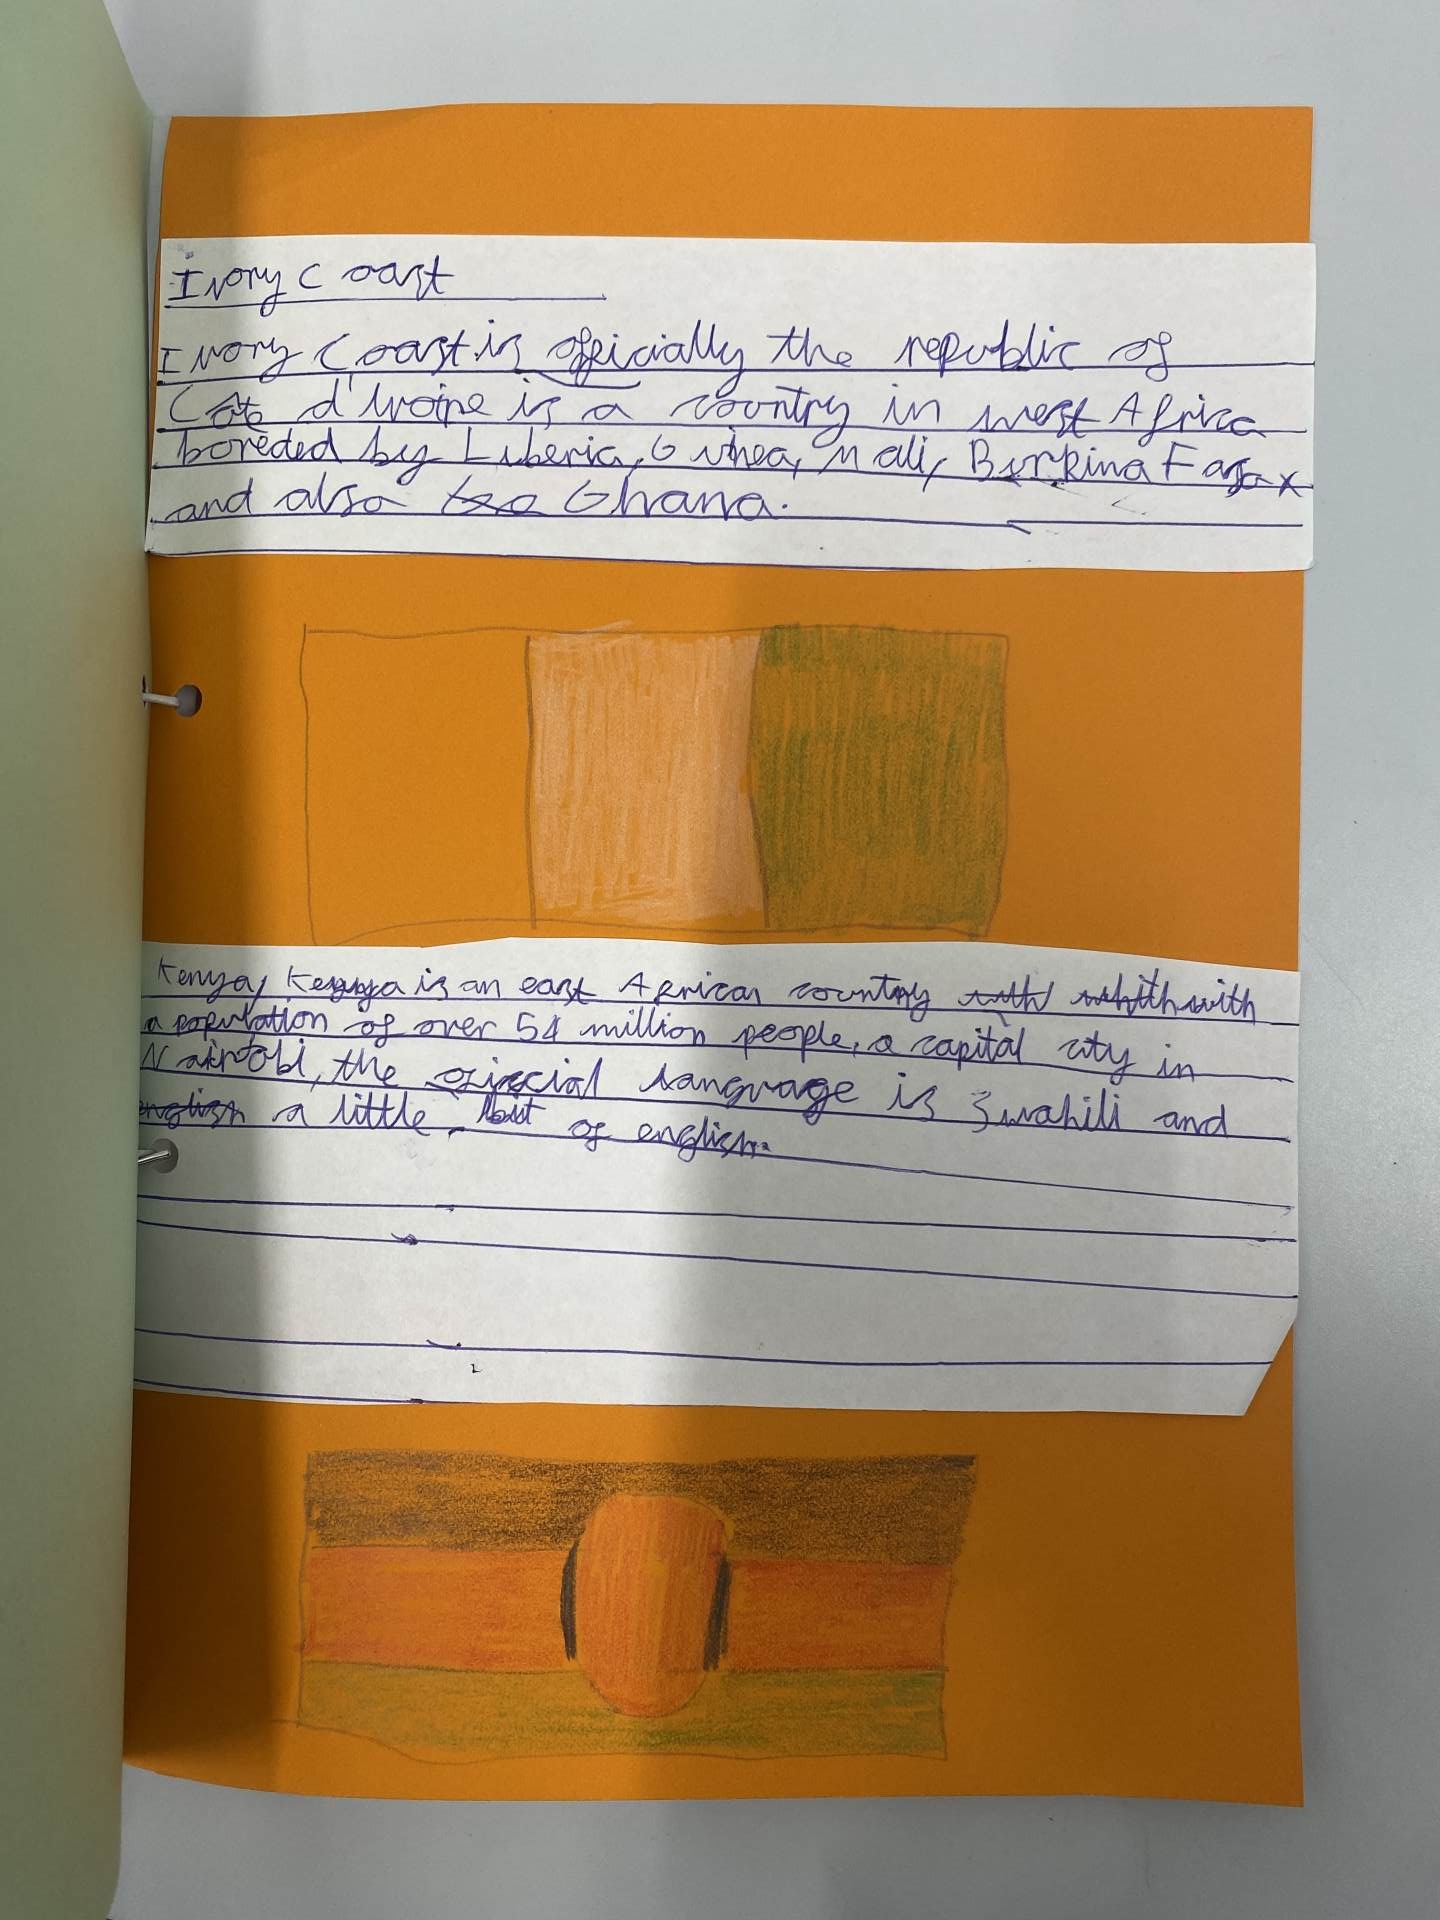 Ivory Coast
Ivory Coast is officially the republic of
Côte d'Ivoire is a country in west Africa
boreded by Liberia, Guinea, Mali, Burkina Faso
and also Ghana.
Kenya, Kenya is an east African country with
a population of over 54 million people, a capital city in
Nairobi, the official language is Swahili and
english a little bit of english.